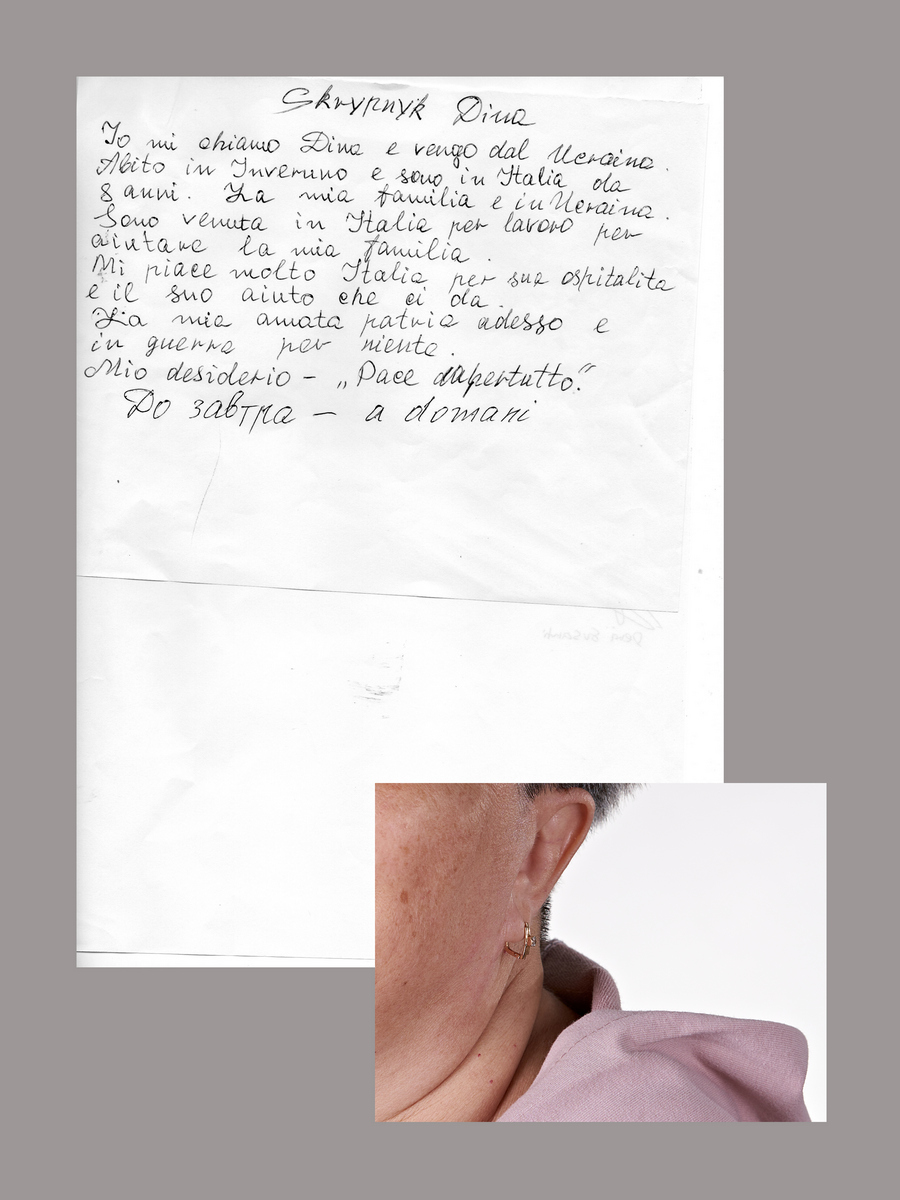 Skrypnyk Dina
Io mi chiamo Dina e vengo dal Ucraina.
Abito in Inveruno e sono in Italia da
8 anni. La mia familia e in Ucraina.
Sono venuta in Italia per lavoro per
aiutare la mia familia.
Mi piace molto Italia per sua ospitalita
e il suo aiuto che ci da.
La mia amata patria adesso e
in guerra per niente.
Mio desiderio – „Pace dapertutto."
До завтра – a domani